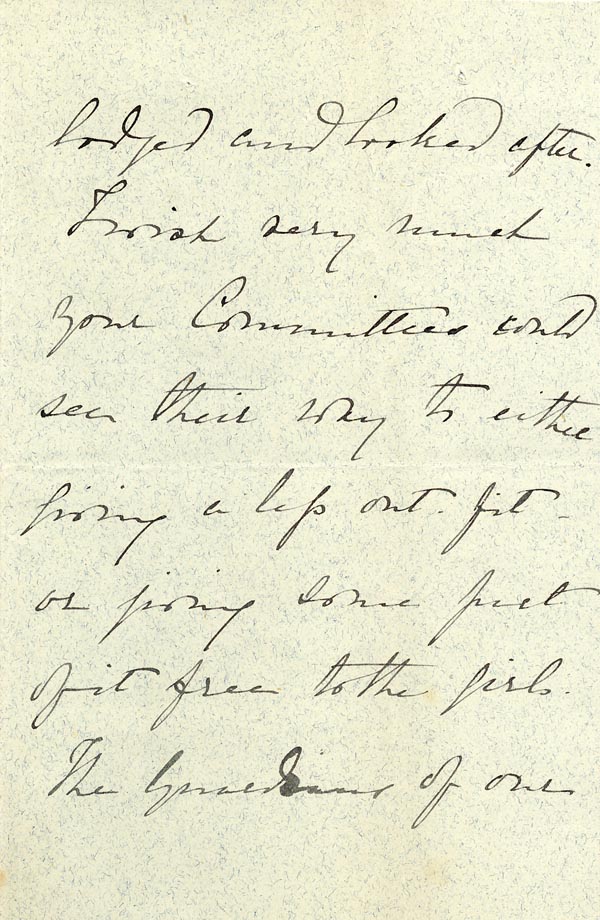 lodged and looked after.
I wish very much
your Committee could
see their way to either
giving a less out-fit -
or giving some part
of it free to the girls.
The Guardians of our